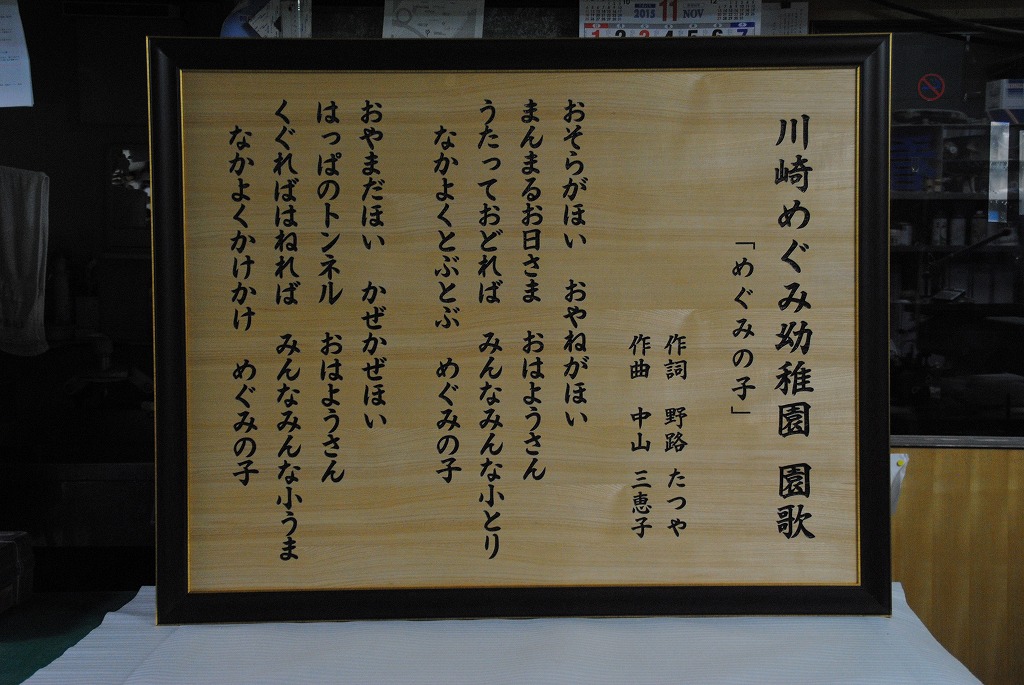 川崎めぐみ幼稚園 園歌
「めぐみの子」
作詞 野路 たつや
作曲 中山 三恵子
おそらがほい おやねがほい
まんまるお日さま おはようさん
うたっておどれば みんなみんな小とり
なかよくとぶとぶ めぐみの子
おやまだほい かぜかぜほい
はっぱのトンネル おはようさん
くぐればはねれば みんなみんな小うま
なかよくかけかけ めぐみの子
10 2015 11 NOV 12
1 2 3 4 5 6 7